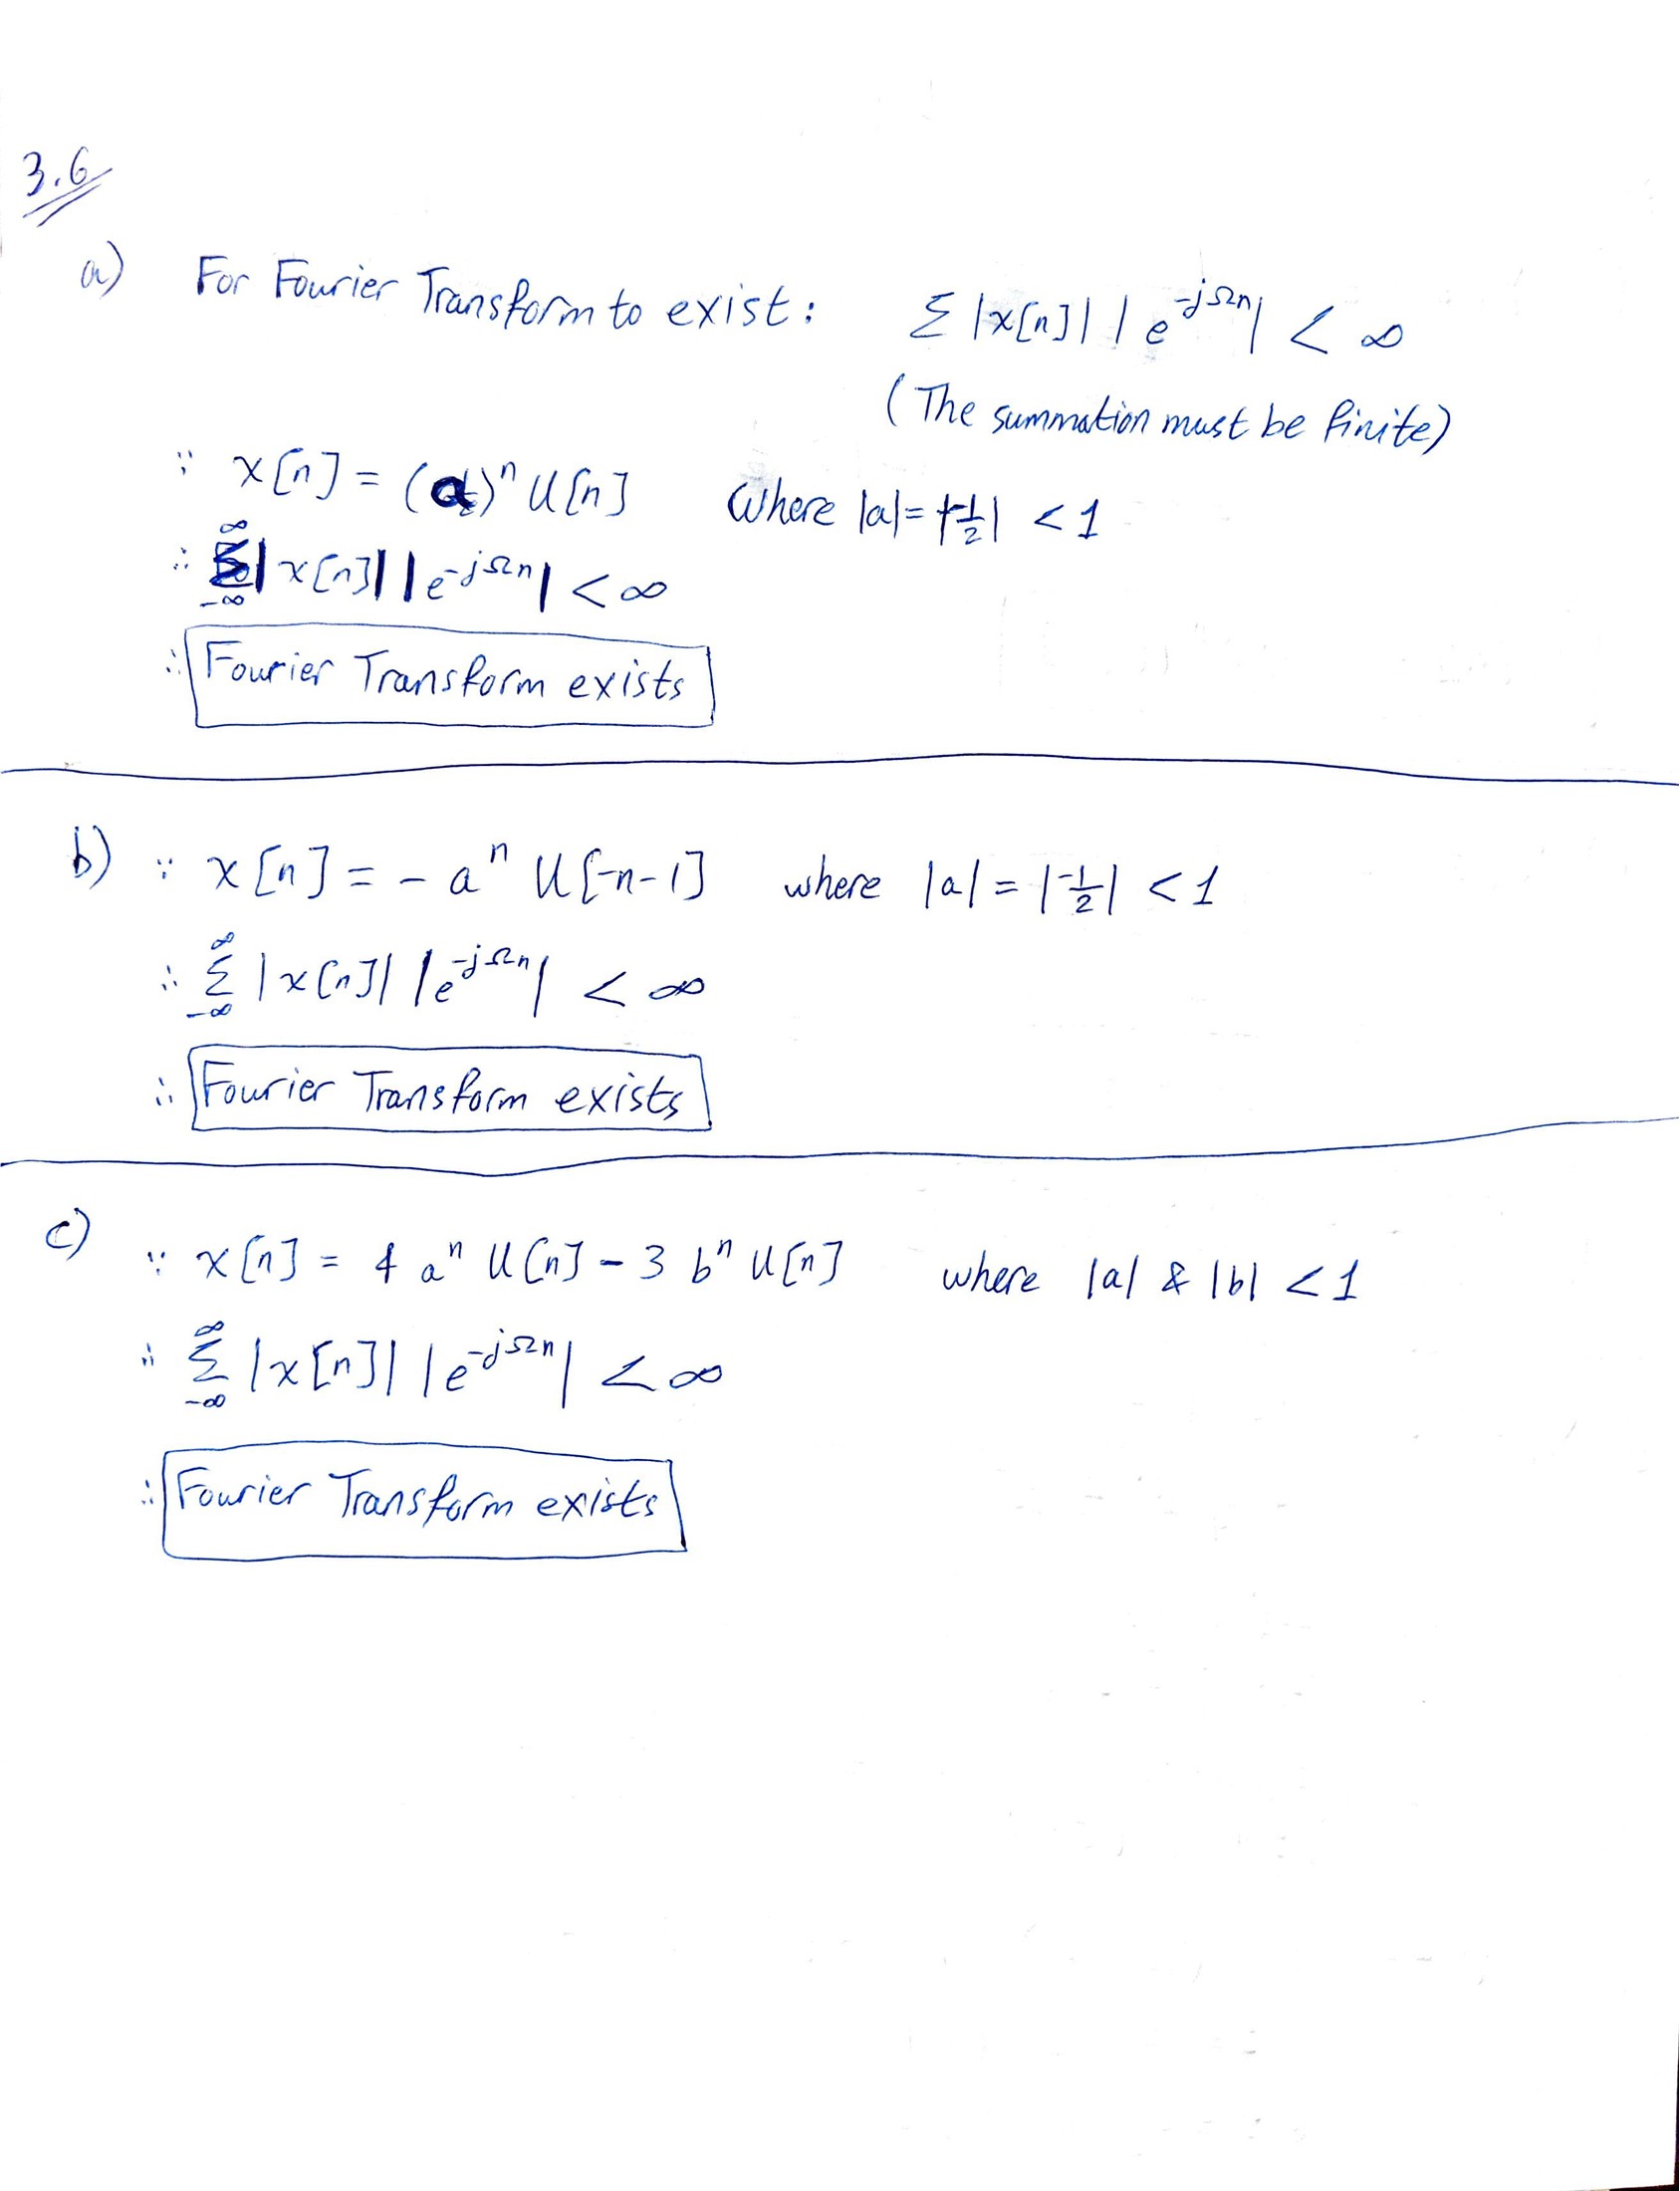 3.6
a) For Fourier Transform to exist: Σ |x[n]| |e^{-jΩn}| < ∞
(The summation must be finite)
∵ x[n] = (a)ⁿ U[n] where |a| = |-1/2| < 1
∴ Σ_{-∞}^{∞} |x[n]| |e^{-jΩn}| < ∞
∴ Fourier Transform exists
b) ∵ x[n] = - aⁿ U[-n-1] where |a| = |-1/2| < 1
∴ Σ_{-∞}^{∞} |x[n]| |e^{-jΩn}| < ∞
∴ Fourier Transform exists
c) ∵ x[n] = 4 aⁿ U[n] - 3 bⁿ U[n] where |a| & |b| < 1
∴ Σ_{-∞}^{∞} |x[n]| |e^{-jΩn}| < ∞
∴ Fourier Transform exists